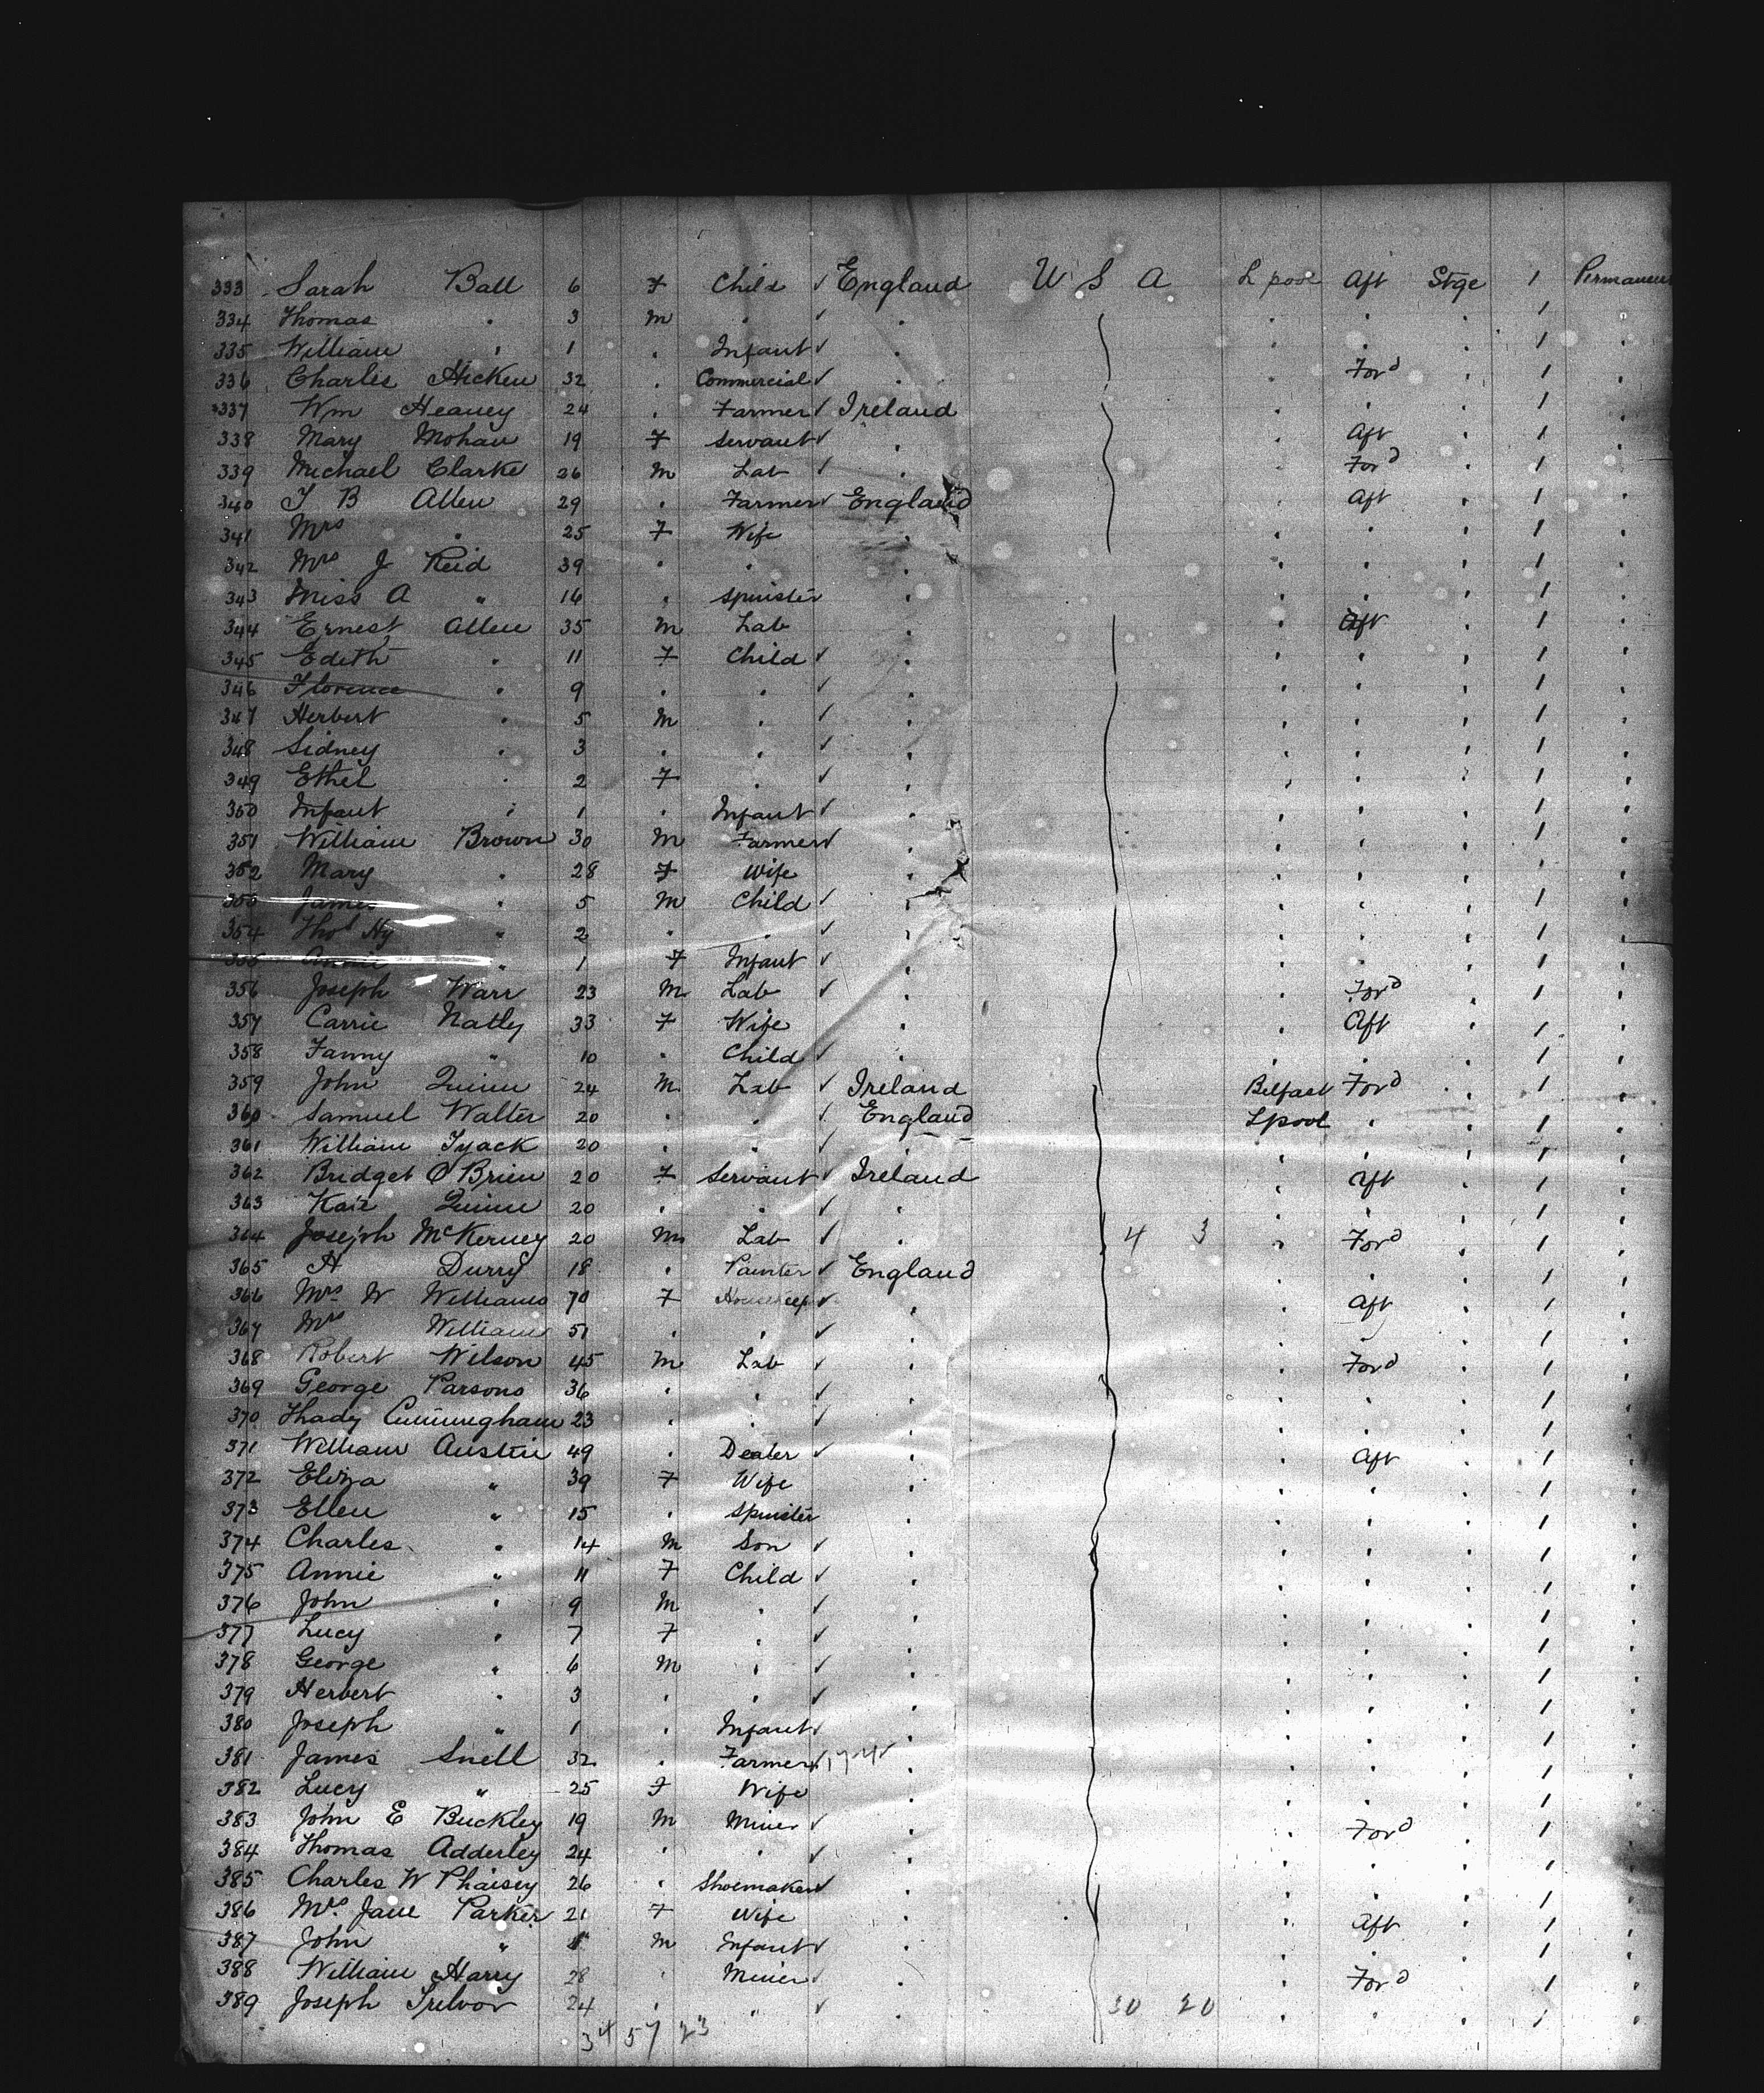 333 Sarah Ball 6 F Child ✓ England U S A L pool Aft Stge 1 Permanent
334 Thomas " 3 M " ✓ " " " " 1 "
335 William " 1 " Infant ✓ " " " " 1 "
336 Charles Hicken 32 " Commercial ✓ " " Ford " 1 "
337 Wm Heaney 24 " Farmer ✓ Ireland " " " 1 "
338 Mary Mohan 19 F Servant ✓ " " Aft " 1 "
339 Michael Clarke 26 M Lab ✓ " " Ford " 1 "
340 J B Allen 29 " Farmer ✓ England " Aft " 1 "
341 Mrs " 25 F Wife " " " " 1 "
342 Mrs J Reid 39 " " " " " " 1 "
343 Miss A " 16 " Spinster " " " " 1 "
344 Ernest Allen 35 M Lab " " Aft " 1 "
345 Edith " 11 F Child ✓ " " " " 1 "
346 Florence " 9 " " ✓ " " " " 1 "
347 Herbert " 5 M " ✓ " " " " 1 "
348 Sidney " 3 " " ✓ " " " " 1 "
349 Ethel " 2 F " ✓ " " " " 1 "
350 Infant " 1 " Infant ✓ " " " " 1 "
351 William Brown 30 M Farmer ✓ " " " " 1 "
352 Mary " 28 F Wife " " " " 1 "
353 James " 5 M Child ✓ " " " " 1 "
354 Thos Hy " 2 " " ✓ " " " " 1 "
355 Annie " 1 F Infant ✓ " " " " 1 "
356 Joseph Warr 23 M Lab ✓ " " Ford " 1 "
357 Carrie Natly 33 F Wife " " Aft " 1 "
358 Fanny " 10 " Child ✓ " " " " 1 "
359 John Quinn 24 M Lab ✓ Ireland Belfast Ford " 1 "
360 Samuel Walter 20 " " ✓ England Lpool " " 1 "
361 William Tyack 20 " " ✓ " " " " 1 "
362 Bridget O'Brien 20 F Servant ✓ Ireland " Aft " 1 "
363 Kate Quinn 20 " " ✓ " " " " 1 "
364 Joseph McKerney 20 M Lab ✓ " 4 3 " Ford " 1 "
365 H Durry 18 " Painter ✓ England " " " 1 "
366 Mrs W Williams 70 F Housekeep ✓ " " Aft " 1 "
367 Mrs William 51 " " ✓ " " " " 1 "
368 Robert Wilson 45 M Lab ✓ " " Ford " 1 "
369 George Parsons 36 " " ✓ " " " " 1 "
370 Thady Cunningham 23 " " ✓ " " " " 1 "
371 William Austin 49 " Dealer ✓ " " Aft " 1 "
372 Eliza " 39 F Wife " " " " 1 "
373 Ellen " 15 " Spinster " " " " 1 "
374 Charles " 14 M Son ✓ " " " " 1 "
375 Annie " 11 F Child ✓ " " " " 1 "
376 John " 9 M " ✓ " " " " 1 "
377 Lucy " 7 F " ✓ " " " " 1 "
378 George " 6 M " ✓ " " " " 1 "
379 Herbert " 3 " " ✓ " " " " 1 "
380 Joseph " 1 " Infant ✓ " " " " 1 "
381 James Snell 32 " Farmer ✓ " " " " 1 "
382 Lucy " 25 F Wife " " " " 1 "
383 John E Buckley 19 M Miner ✓ " " Ford " 1 "
384 Thomas Adderley 24 " " ✓ " " " " 1 "
385 Charles W Phaisey 26 " Shoemaker ✓ " " " " 1 "
386 Mrs. Jane Parker 21 F Wife " " Aft " 1 "
387 John " M Infant ✓ " " " " 1 "
388 William Harry 28 " Miner ✓ " " Ford " 1 "
389 Joseph Trelvor 24 " " ✓ " 30 20 " " " 1 "
34 57 23